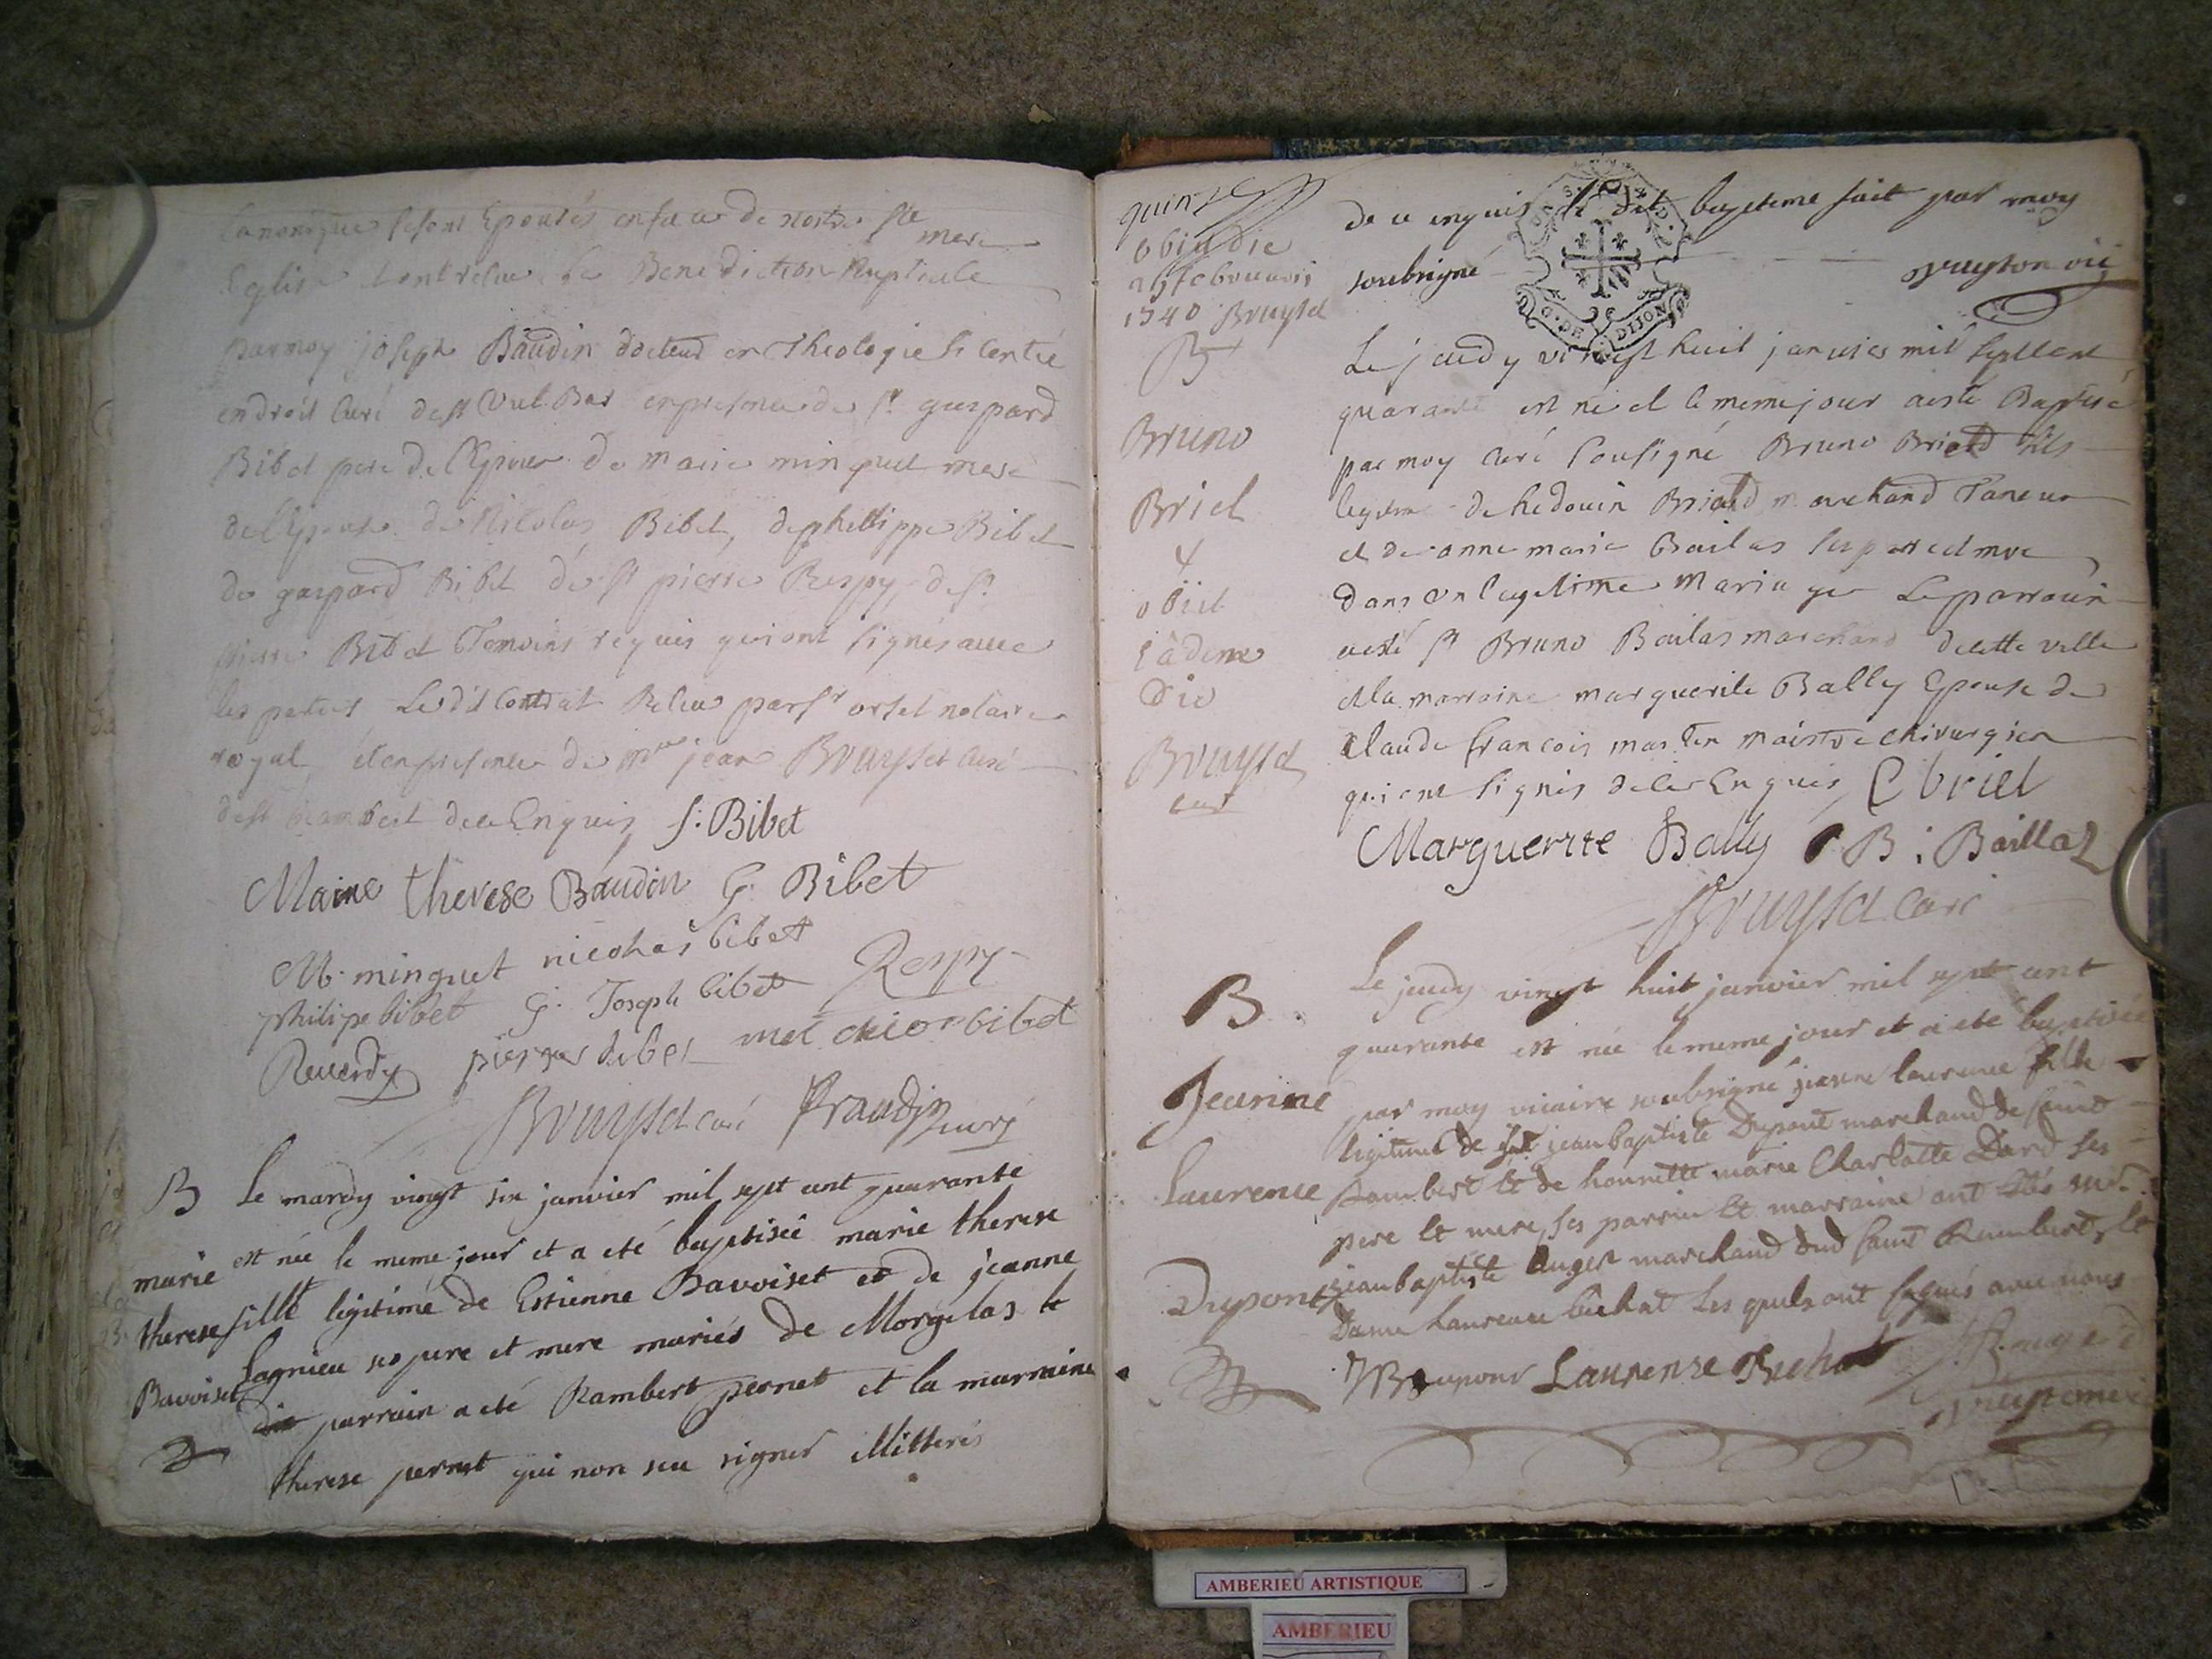 Canonique se sont Epousés en face de nostre Ste
mere
Eglise et ont reçu la Benediction Nuptiale
par moy joseph Baudin docteur en Theologie licentié
en droit Curé de st Vul Bas en presence de sr gaspard
Bibet pere de l'Epoux de marie minguet mere
de l'Epouse de Nicolas Bibet, de phelippe Bibet
de gaspard Bibet de sr pierre Respy de sr
pierre Bibet Temoins requis qui ont signés avec
les parties Le dit Contrat Releu par sr orset notaire
royal et en presence de mre jean Bruyset curé
de st Rambert de ce Enquis f: Bibet
Marie therese Baudin G. Bibet
M. minguet nicolas bibet
philipe bibet G. Joseph bibet Respy
Reverdy pierre bibet mel chior bibet
Bruyset curé Baudin curé
B Le mardy vingt six janvier mil sept cent quarante
marie est née le meme jour et a eté baptisée marie therese
therese fille legitime de Estienne Bavoiset et de jeanne
Lagnieu ses pere et mere mariés de Morgelas le
Bavoiset parrain a eté Rambert pernet et la marraine
therese pernet qui non seu signer
quinze
obiit die
febvrier
1740 Bruyset
de ce enquis le dit bapteme fait par moy
soubsigné
G. DE DIJON
B
Le jeudy vingt huit janvier mil sept cent
quarante est né et le meme jour a esté Baptisé
Bruno
par moy curé sousigné Bruno Briel fils
Briel
legitime de hedouin Briel marchand Taneur
et de anne marie Bailas ses pere et mere
obiit
dans un legitime mariage Le parrain
eâdem
a esté sr Bruno Bailas marchand de cette ville
Die
et la marraine marguerite Bally Epouse de
Bruyset
Claude francois martin maistre chirurgien
curé
qui ont signés de ce Enquis C briel
Marguerite Bally B: Baillas
Bruyset curé
B.
Le jeudy vingt huit janvier mil sept cent
quarante est née le meme jour et a eté baptisée
Jeanne
par moy vicaire soubsigné jeanne laurence fille
legitime de jeanbaptiste Dupont marchand de saint
Laurence
Rambert et de honnette marie Charlotte Dard ses
pere et mere, ses parrain et marraine ont étés
Dupont
jeanbaptiste Auger marchand dud saint Rambert, et
Dame Laurence buchat Les quels ont signés avec nous
JB Dupont Laurense Buchat
AMBERIEU ARTISTIQUE
AMBERIEU